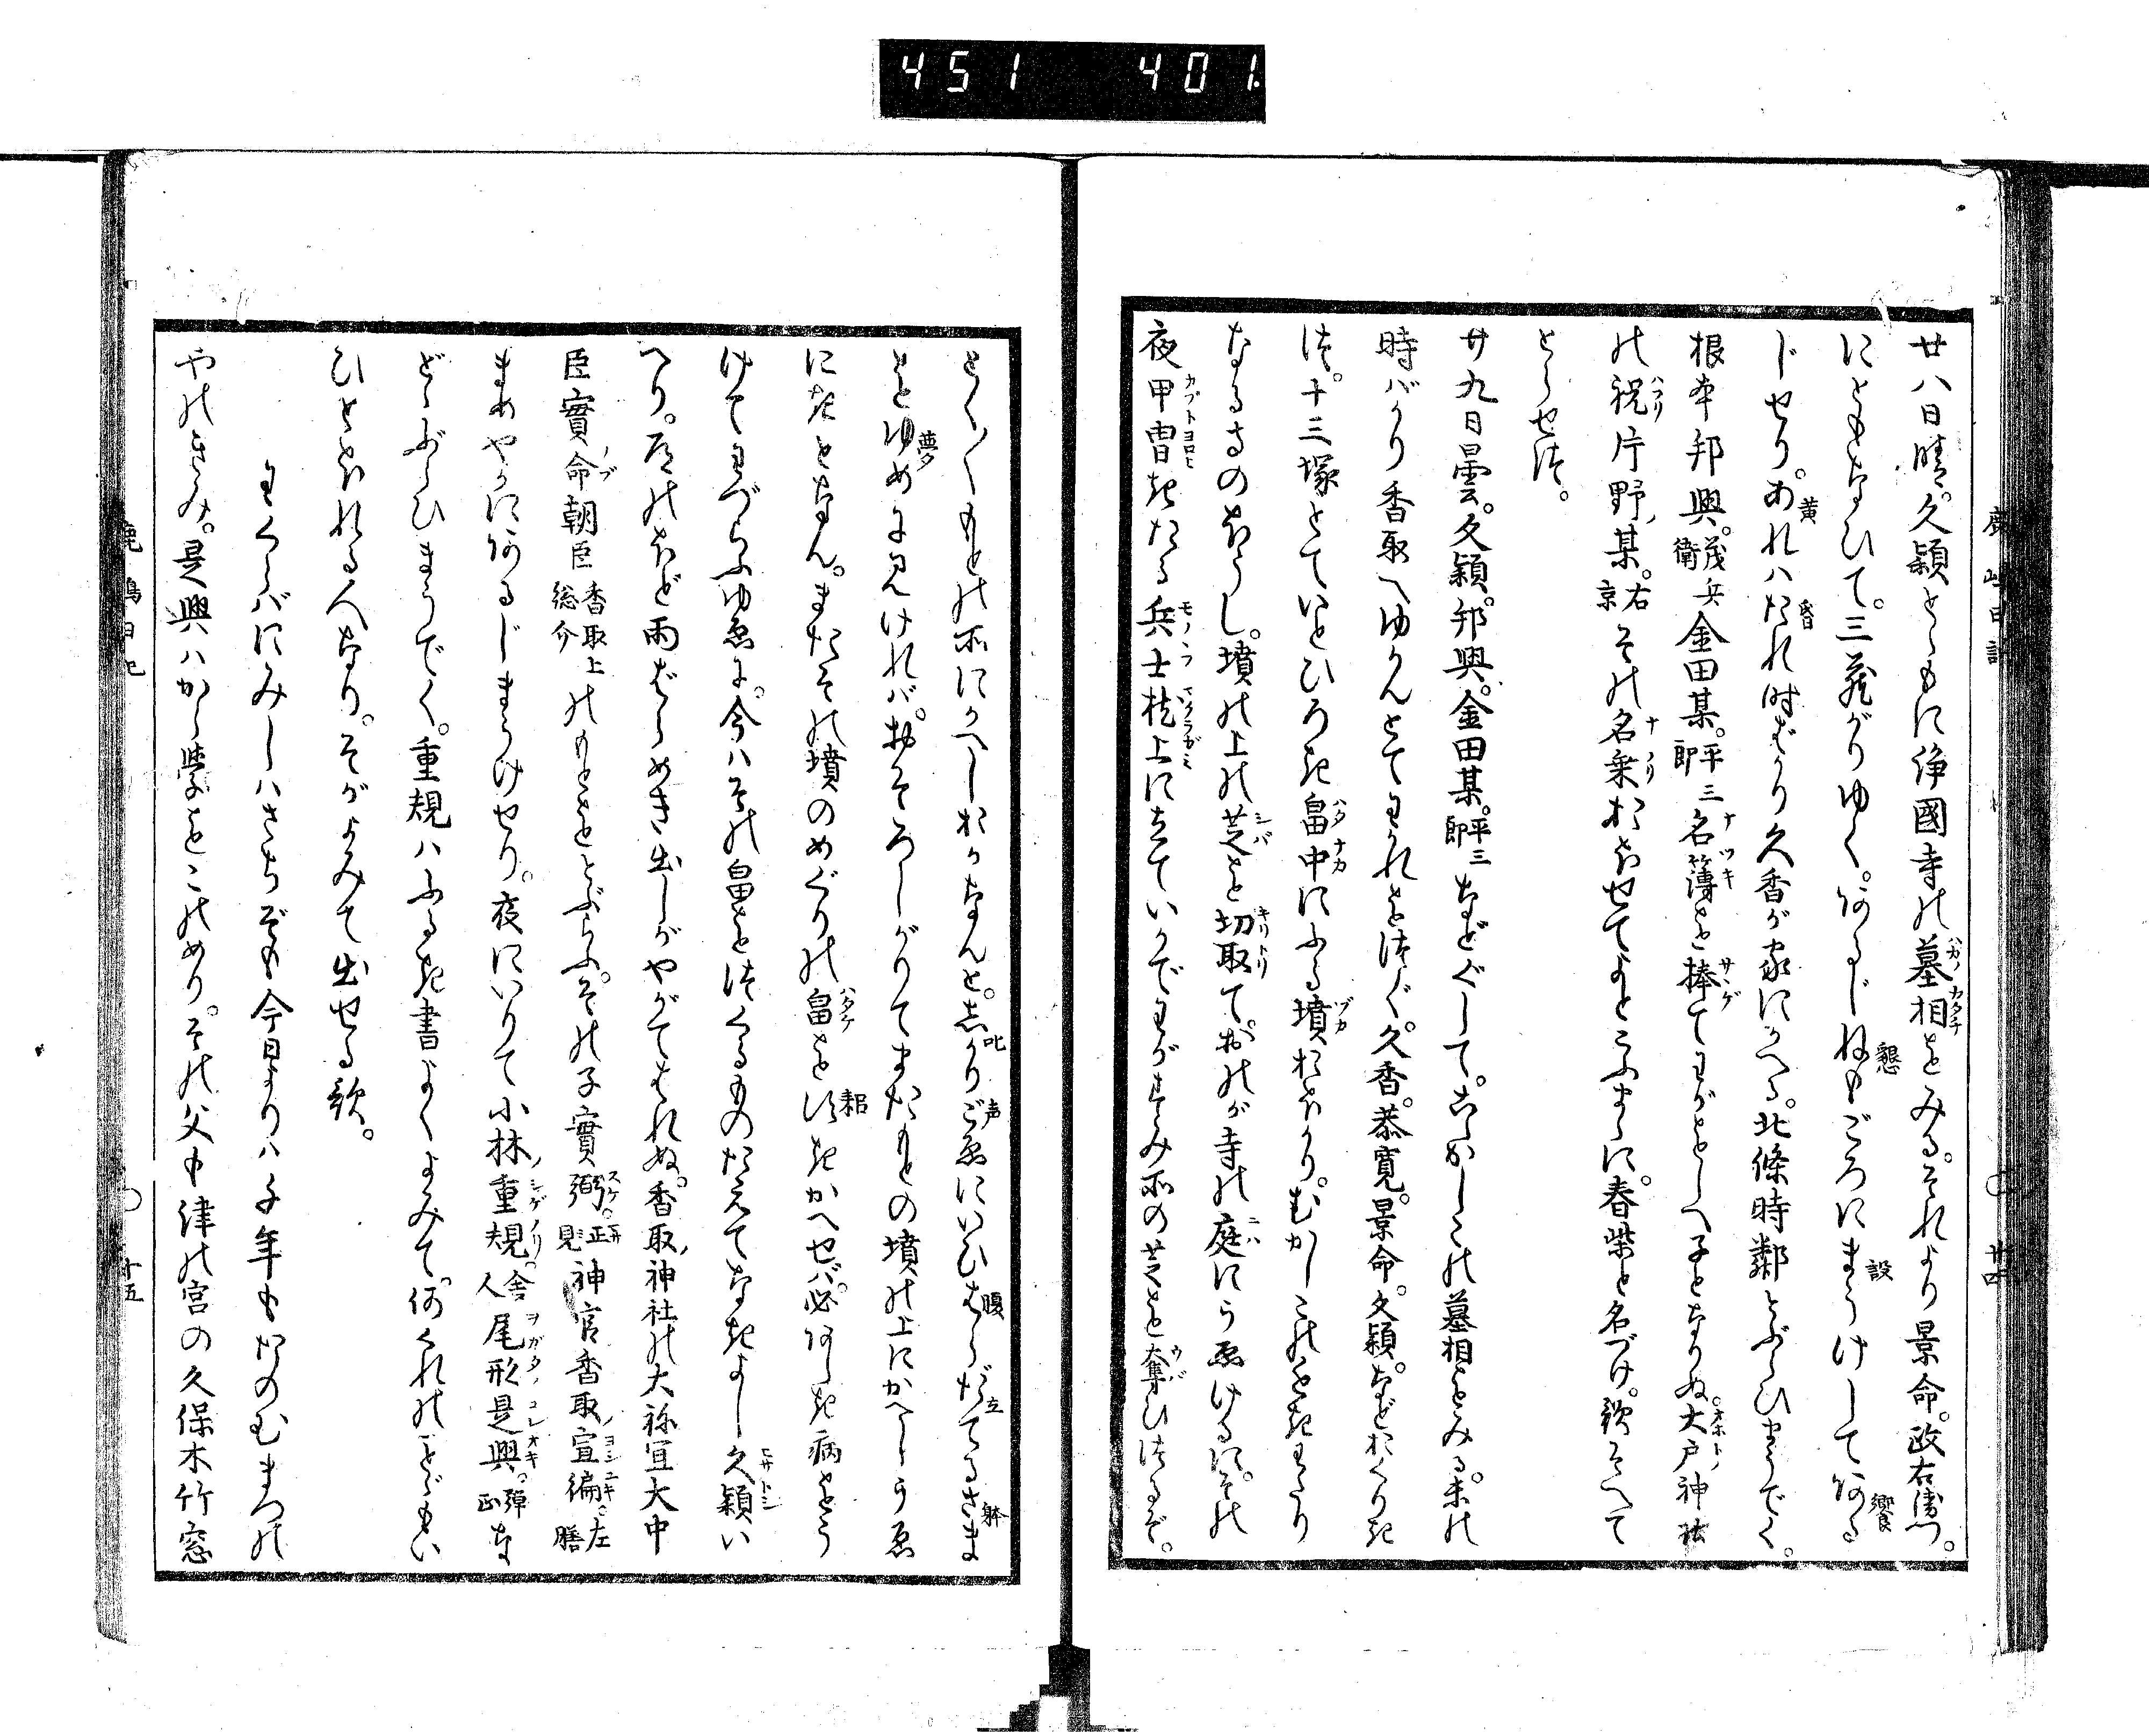 451 401
廿八日晴。久頴とゝもに浄國寺の墓相をみる。それより景命。政右衛つ。
にともなひて。三菴がりゆく。あるじねもごろにまうけしてある
じせり。あれハたれ時ばかり久香が家にかへる。北條時鄰とぶらひまうでく。
根本邦興。茂兵衛金田某。平三郎名簿を捧てわがをしへ子となりぬ。大戸神社
の祝片野某。右京その名乗おほせてよとこふまゝに。春柴と名づけ。歌そへて
とらせつ。
廿九日曇。久頴。邦興。金田某。平三郎などぐして。こゝかしこの墓相をみる。未の
時ばかり香取へゆかんとてわかれをつぐ。久香。恭寛。景命。久頴。などおくりき
つ。十三塚とていとひろき畠中にふる墳おほかり。むかしこのをきわたり
なるさのほうし。墳の上の芝を切取て。おのが寺の庭にうゑけるに。その
夜甲冑きたる兵士枕上に立ていかでわがすみ所の芝を奪ひつるぞ。
とく〳〵もとの所にかへしおかなんと。しかりごゑにいひはらだてるさま
をゆめに見けれバ。おそろしがりてまたもとの墳の上にかへしうゑ
にきとなん。またその墳のめぐりの畠を鋤きかへせバ。必あしき病をう
けてわづらふゆゑに。今ハその畠をつくるものたえてなきよし久頴い
へり。道のほど雨ばらめき出しがやがてはれぬ。香取神社の大祢宜大中
臣實命朝臣香取上総介のもとをとぶらふ。その子實彌。正見神官香取宜徧左膳
まめやかにあるじまうけせり。夜にいりて小林重規。舎人尾形是興。弾正な
どとぶらひまうでく。重規ハふるき書よくよみて。何くれのことゞもい
ひとほれる人なり。そがよみて出せる歌。
わくらバにみしハさちぞも今日よりハ千年もたのむまつの
やのきみ。是興ハから學をこのめり。その父中津の宮の久保木竹窓
鹿嶋日記
廿四
鹿嶋日記
十五